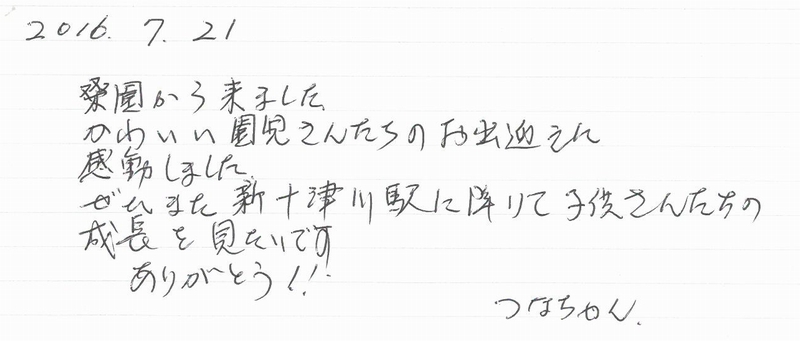 2016. 7. 21
桑園から来ました
かわいい園児さんたちのお出迎えに
感動しました
ぜひまた 新十津川駅に降りて子供さんたちの
成長を見たいです
ありがとう!!
つなちゃん.